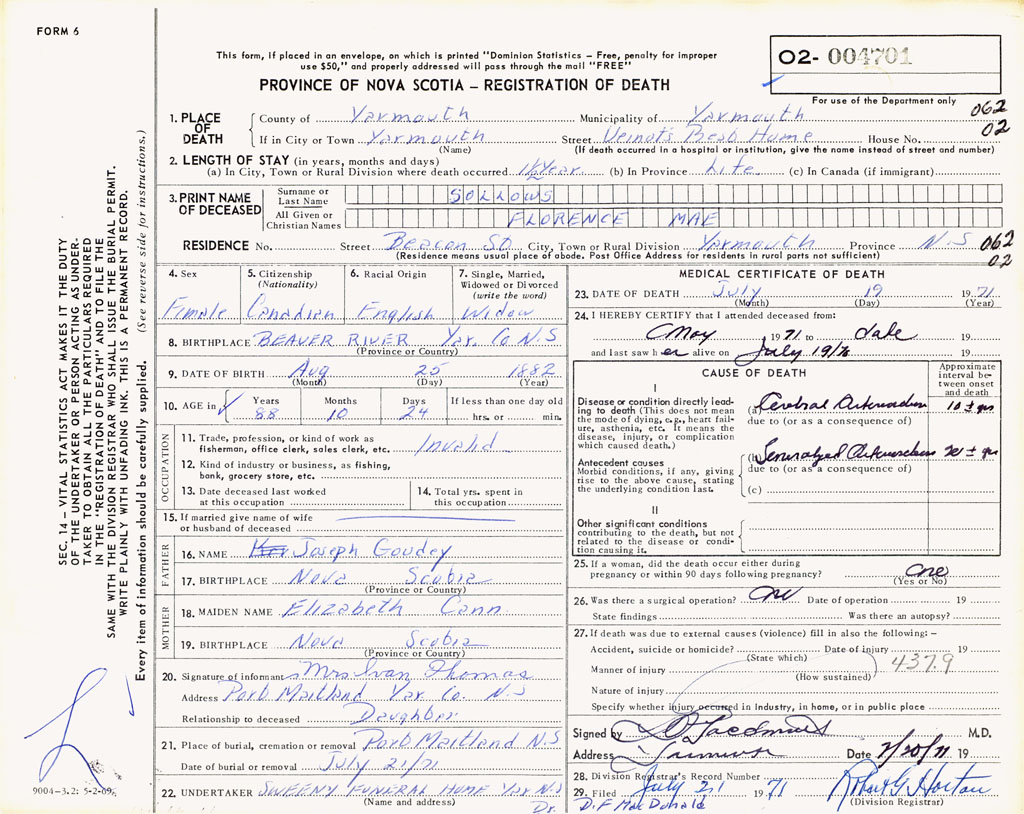 FORM 6
This form, if placed in an envelope, on which is printed "Dominion Statistics – Free, penalty for improper
use $50," and properly addressed will pass through the mail "FREE"
02- 004701
PROVINCE OF NOVA SCOTIA – REGISTRATION OF DEATH
For use of the Department only
1. PLACE OF DEATH County of Yarmouth Municipality of Yarmouth 062
If in City or Town Yarmouth Street Veinot's Rest Home House No. 02
(Name) (If death occurred in a hospital or institution, give the name instead of street and number)
2. LENGTH OF STAY (in years, months and days)
(a) In City, Town or Rural Division where death occurred 1½ Year (b) In Province Life (c) In Canada (if immigrant)
3. PRINT NAME OF DECEASED Surname or Last Name SOLLOWS
All Given or Christian Names FLORENCE MAE
RESIDENCE No. Street Beacon St City, Town or Rural Division Yarmouth Province N.S 062
(Residence means usual place of abode. Post Office Address for residents in rural parts not sufficient) 02
4. Sex
Female
5. Citizenship
(Nationality)
Canadian
6. Racial Origin
English
7. Single, Married,
Widowed or Divorced
(write the word)
Widow
8. BIRTHPLACE BEAVER RIVER Yar. Co N.S
(Province or Country)
9. DATE OF BIRTH Aug 25 1882
(Month) (Day) (Year)
10. AGE in Years Months Days If less than one day old
88 10 24 hrs. or min.
OCCUPATION
11. Trade, profession, or kind of work as
fisherman, office clerk, sales clerk, etc. Invalid
12. Kind of industry or business, as fishing,
bank, grocery store, etc.
13. Date deceased last worked
at this occupation
14. Total yrs. spent in
this occupation
15. If married give name of wife
or husband of deceased
FATHER
16. NAME Joseph Goudey
17. BIRTHPLACE Nova Scotia
(Province or Country)
MOTHER
18. MAIDEN NAME Elizabeth Cann
19. BIRTHPLACE Nova Scotia
(Province or Country)
20. Signature of informant Mrs Ivan Thomas
Address Port Maitland Yar. Co. N.S
Relationship to deceased Daughter
21. Place of burial, cremation or removal Port Maitland N.S
Date of burial or removal July 21/71
22. UNDERTAKER SWEENY FUNERAL HOME Yar N.S
(Name and address)
MEDICAL CERTIFICATE OF DEATH
23. DATE OF DEATH July 19 1971
(Month) (Day) (Year)
24. I HEREBY CERTIFY that I attended deceased from:
May 1971 to date 19
and last saw her alive on July 19/71 19
CAUSE OF DEATH
Approximate
interval be-
tween onset
and death
I
Disease or condition directly lead-
ing to death (This does not mean
the mode of dying, e.g., heart fail-
ure, asthenia, etc. It means the
disease, injury, or complication
which caused death.)
(a) Cerebral 10 ± yrs
due to (or as a consequence of)
Antecedent causes
Morbid conditions, if any, giving
rise to the above cause, stating
the underlying condition last.
(b) Generalized 20 ± yrs
due to (or as a consequence of)
(c)
II
Other significant conditions
contributing to the death, but not
related to the disease or condi-
tion causing it.
25. If a woman, did the death occur either during
pregnancy or within 90 days following pregnancy? no
(Yes or No)
26. Was there a surgical operation? no Date of operation 19
State findings Was there an autopsy?
27. If death was due to external causes (violence) fill in also the following: –
Accident, suicide or homicide? Date of injury 19
(State which) 437.9
Manner of injury
(How sustained)
Nature of injury
Specify whether injury occurred in industry, in home, or in public place
Signed by M.D.
Address Yarmouth Date 7/20/71 19
28. Division Registrar's Record Number
29. Filed July 21 1971 Robert G. Horton
(Division Registrar)
Dr. D.F MacDonald
SEC. 14 – VITAL STATISTICS ACT MAKES IT THE DUTY
OF THE UNDERTAKER OR PERSON ACTING AS UNDER-
TAKER TO OBTAIN ALL THE PARTICULARS REQUIRED
IN THE "REGISTRATION OF DEATH" AND TO FILE THE
SAME WITH THE DIVISION REGISTRAR WHO SHALL ISSUE THE BURIAL PERMIT.
WRITE PLAINLY WITH UNFADING INK. THIS IS A PERMANENT RECORD.
Every item of information should be carefully supplied. (See reverse side for instructions.)
9004-3.2: 5-2-69